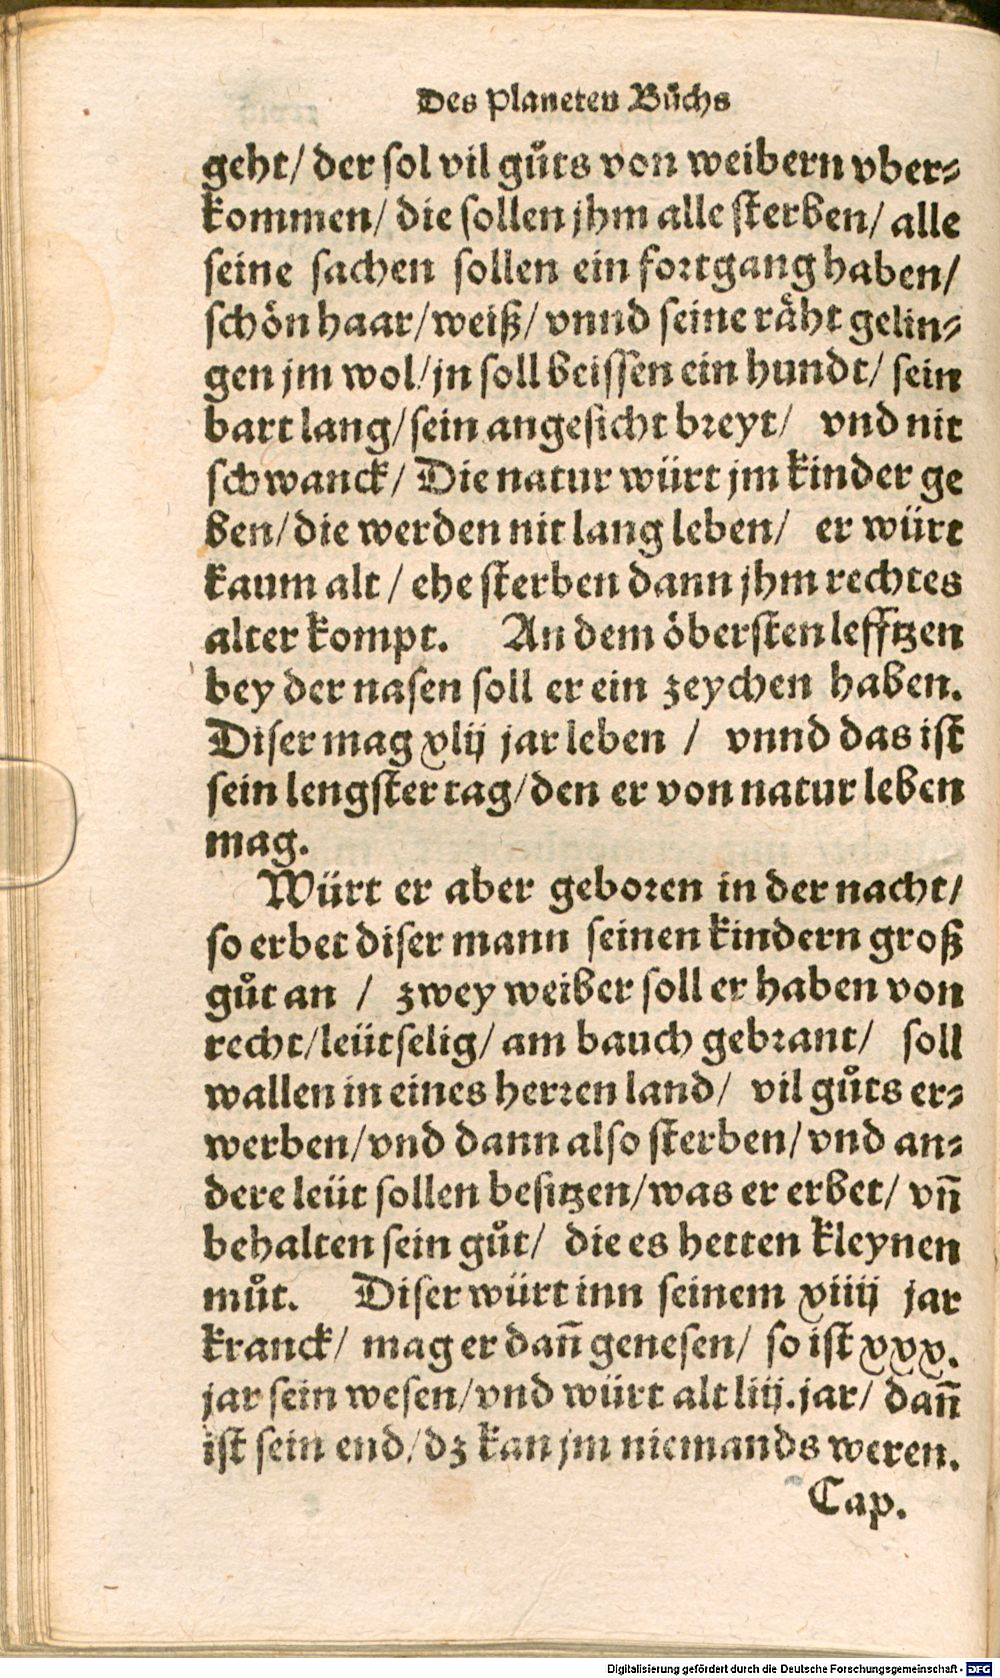 Des Planeten Bůchs
geht/ der sol vil gůts von weibern vber⸗
kommen/ die sollen jhm alle sterben/ alle
seine sachen sollen ein fortgang haben/
schön haar/weiß/ vnnd seine räht gelin⸗
gen jm wol/jn soll beissen ein hundt/ sein
bart lang/sein angesicht breyt/ vnd nit
schwanck/ Die natur würt jm kinder ge
ben/die werden nit lang leben/ er würt
kaum alt / ehe sterben dann jhm rechtes
alter kompt. An dem öbersten lefftzen
bey der nasen soll er ein zeychen haben.
Diser mag xlij jar leben / vnnd das ist
sein lengster tag/den er von natur leben
mag.
Würt er aber geboren in der nacht/
so erbet diser mann seinen kindern groß
gůt an / zwey weiber soll er haben von
recht/leütselig/ am bauch gebrant/ soll
wallen in eines herren land/ vil gůts er⸗
werben/vnd dann also sterben/ vnd an⸗
dere leüt sollen besitzen/was er erbet/ vñ
behalten sein gůt/ die es hetten kleynen
můt. Diser würt inn seinem xiiij jar
kranck/ mag er dañ genesen/ so ist xxx.
jar sein wesen/vnd würt alt liij.jar/ dañ
ist sein end/dz kan jm niemands weren.
Cap.
Digitalisierung gefördert durch die Deutsche Forschungsgemeinschaft - DFG